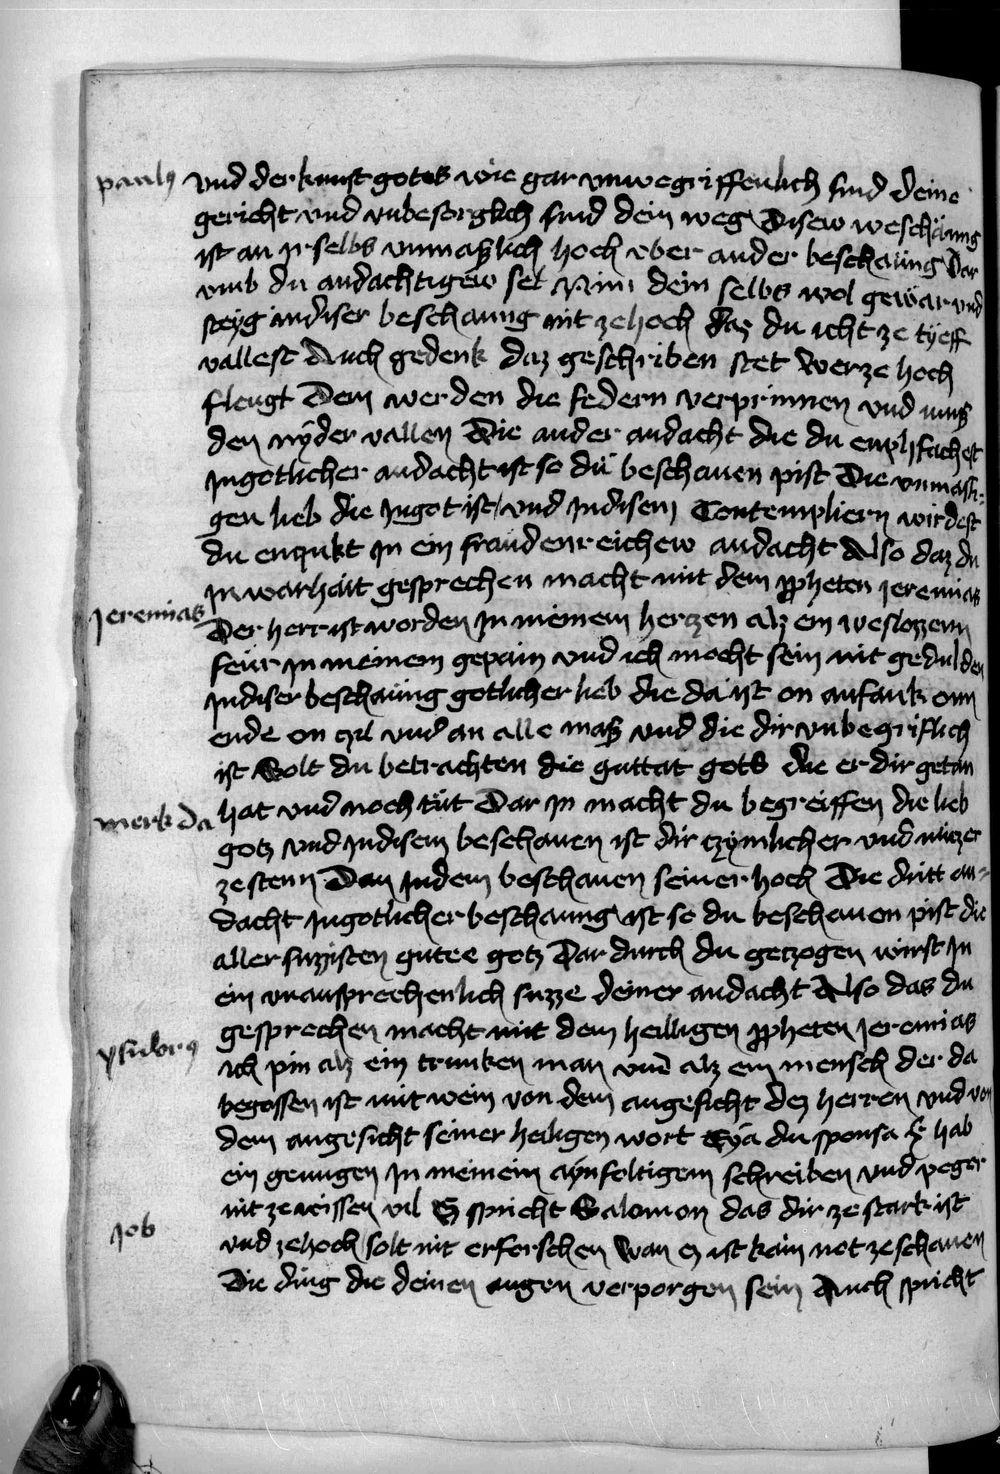 paulus
vnd der kunst gotes wie gar vnwegriffenlich sind deine
gericht vnd vnbesorglich sind dein weg Disew weschaung
ist an ir selbs vnmaslich hoch vber ander beschauung Dar
vmb du andachtigew sel Nim dein selbs wol gewar vnd
steyg in diser beschaung nit ze hoch daz du icht ze tyeff
vallest Auch gedenk daz geschriben stet Wer ze hoch
fleugt Dem werden die federn verprinnen vnd mus
den nyder vallen Die ander andacht die du enpfachest
In gotlicher andacht ist so du beschauen pist Die vnmassi-
gen lieb die In got ist vnd In disem Contempliern wirdest
du enzukt In ein fraudenreichew andacht Also daz du
In warhait gesprechen macht mit dem propheten Jeremias
Jeremias
Der herr ist worden In meinem hertzen alz ein weslozzenn
feur In meinem gepain vnd ich mocht sein nit gedulden
In diser beschaung gotlicher lieb die da ist on anfank onn
ende on czil vnd an alle mas vnd die dir vnbegriflich
ist Wolt du betrachten die guttat gots die er dir getan
merk da
hat vnd noch tut Dar In macht du begreiffen die lieb
gotz vnd In disem beschauen ist dir czymlicher vnd nuczer
ze stenn Dan In dem beschauen seiner hoch Die dritt an-
dacht In gotlicher beschaung ist so du beschauen pist die
aller suzzisten gutee gotz Dar durch du getzogen wirst In
ein vnausprechenlich suzze deiner andacht Also das du
gesprechen macht mit dem heilligen propheten Jeremias
ysidorus
Ich pin alz ein trunken man vnd alz ein mensch der da
begossen ist mit wein von dem angesicht dez herren vnd von
dem angesicht seiner heiligen wort Eya du sponsa hab
ein genugen In meinem aynfoltigem schreiben vnd peger
nit ze wissen vil Es spricht Salomon das dir ze stark ist
Job
vnd ze hoch solt nit erforschen Wan ez ist kain not ze schauen
Die ding die deinen augen verporgen sein Auch spricht